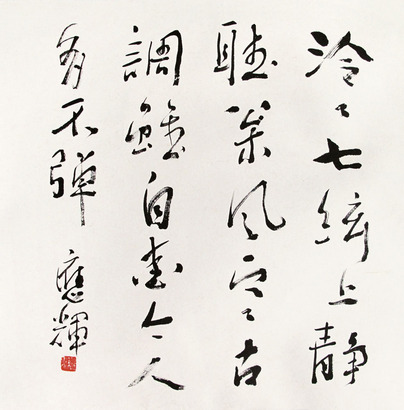 泠〻七絃上靜
聽松風寒古
調雖自愛今人
多不彈 應輝